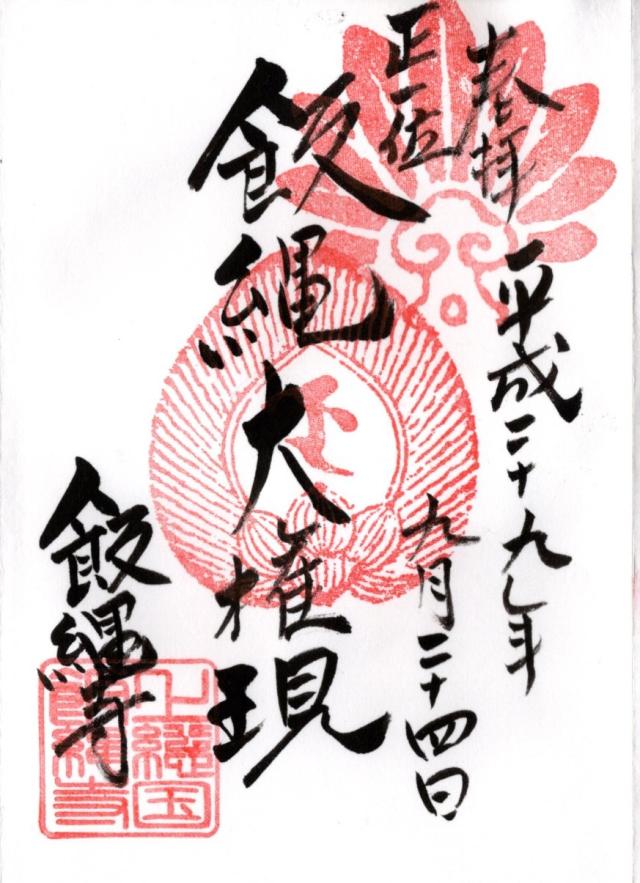 奉拝
平成二十九年
九月二十四日
正一位
飯縄大権現
飯縄寺
上総国
飯縄寺